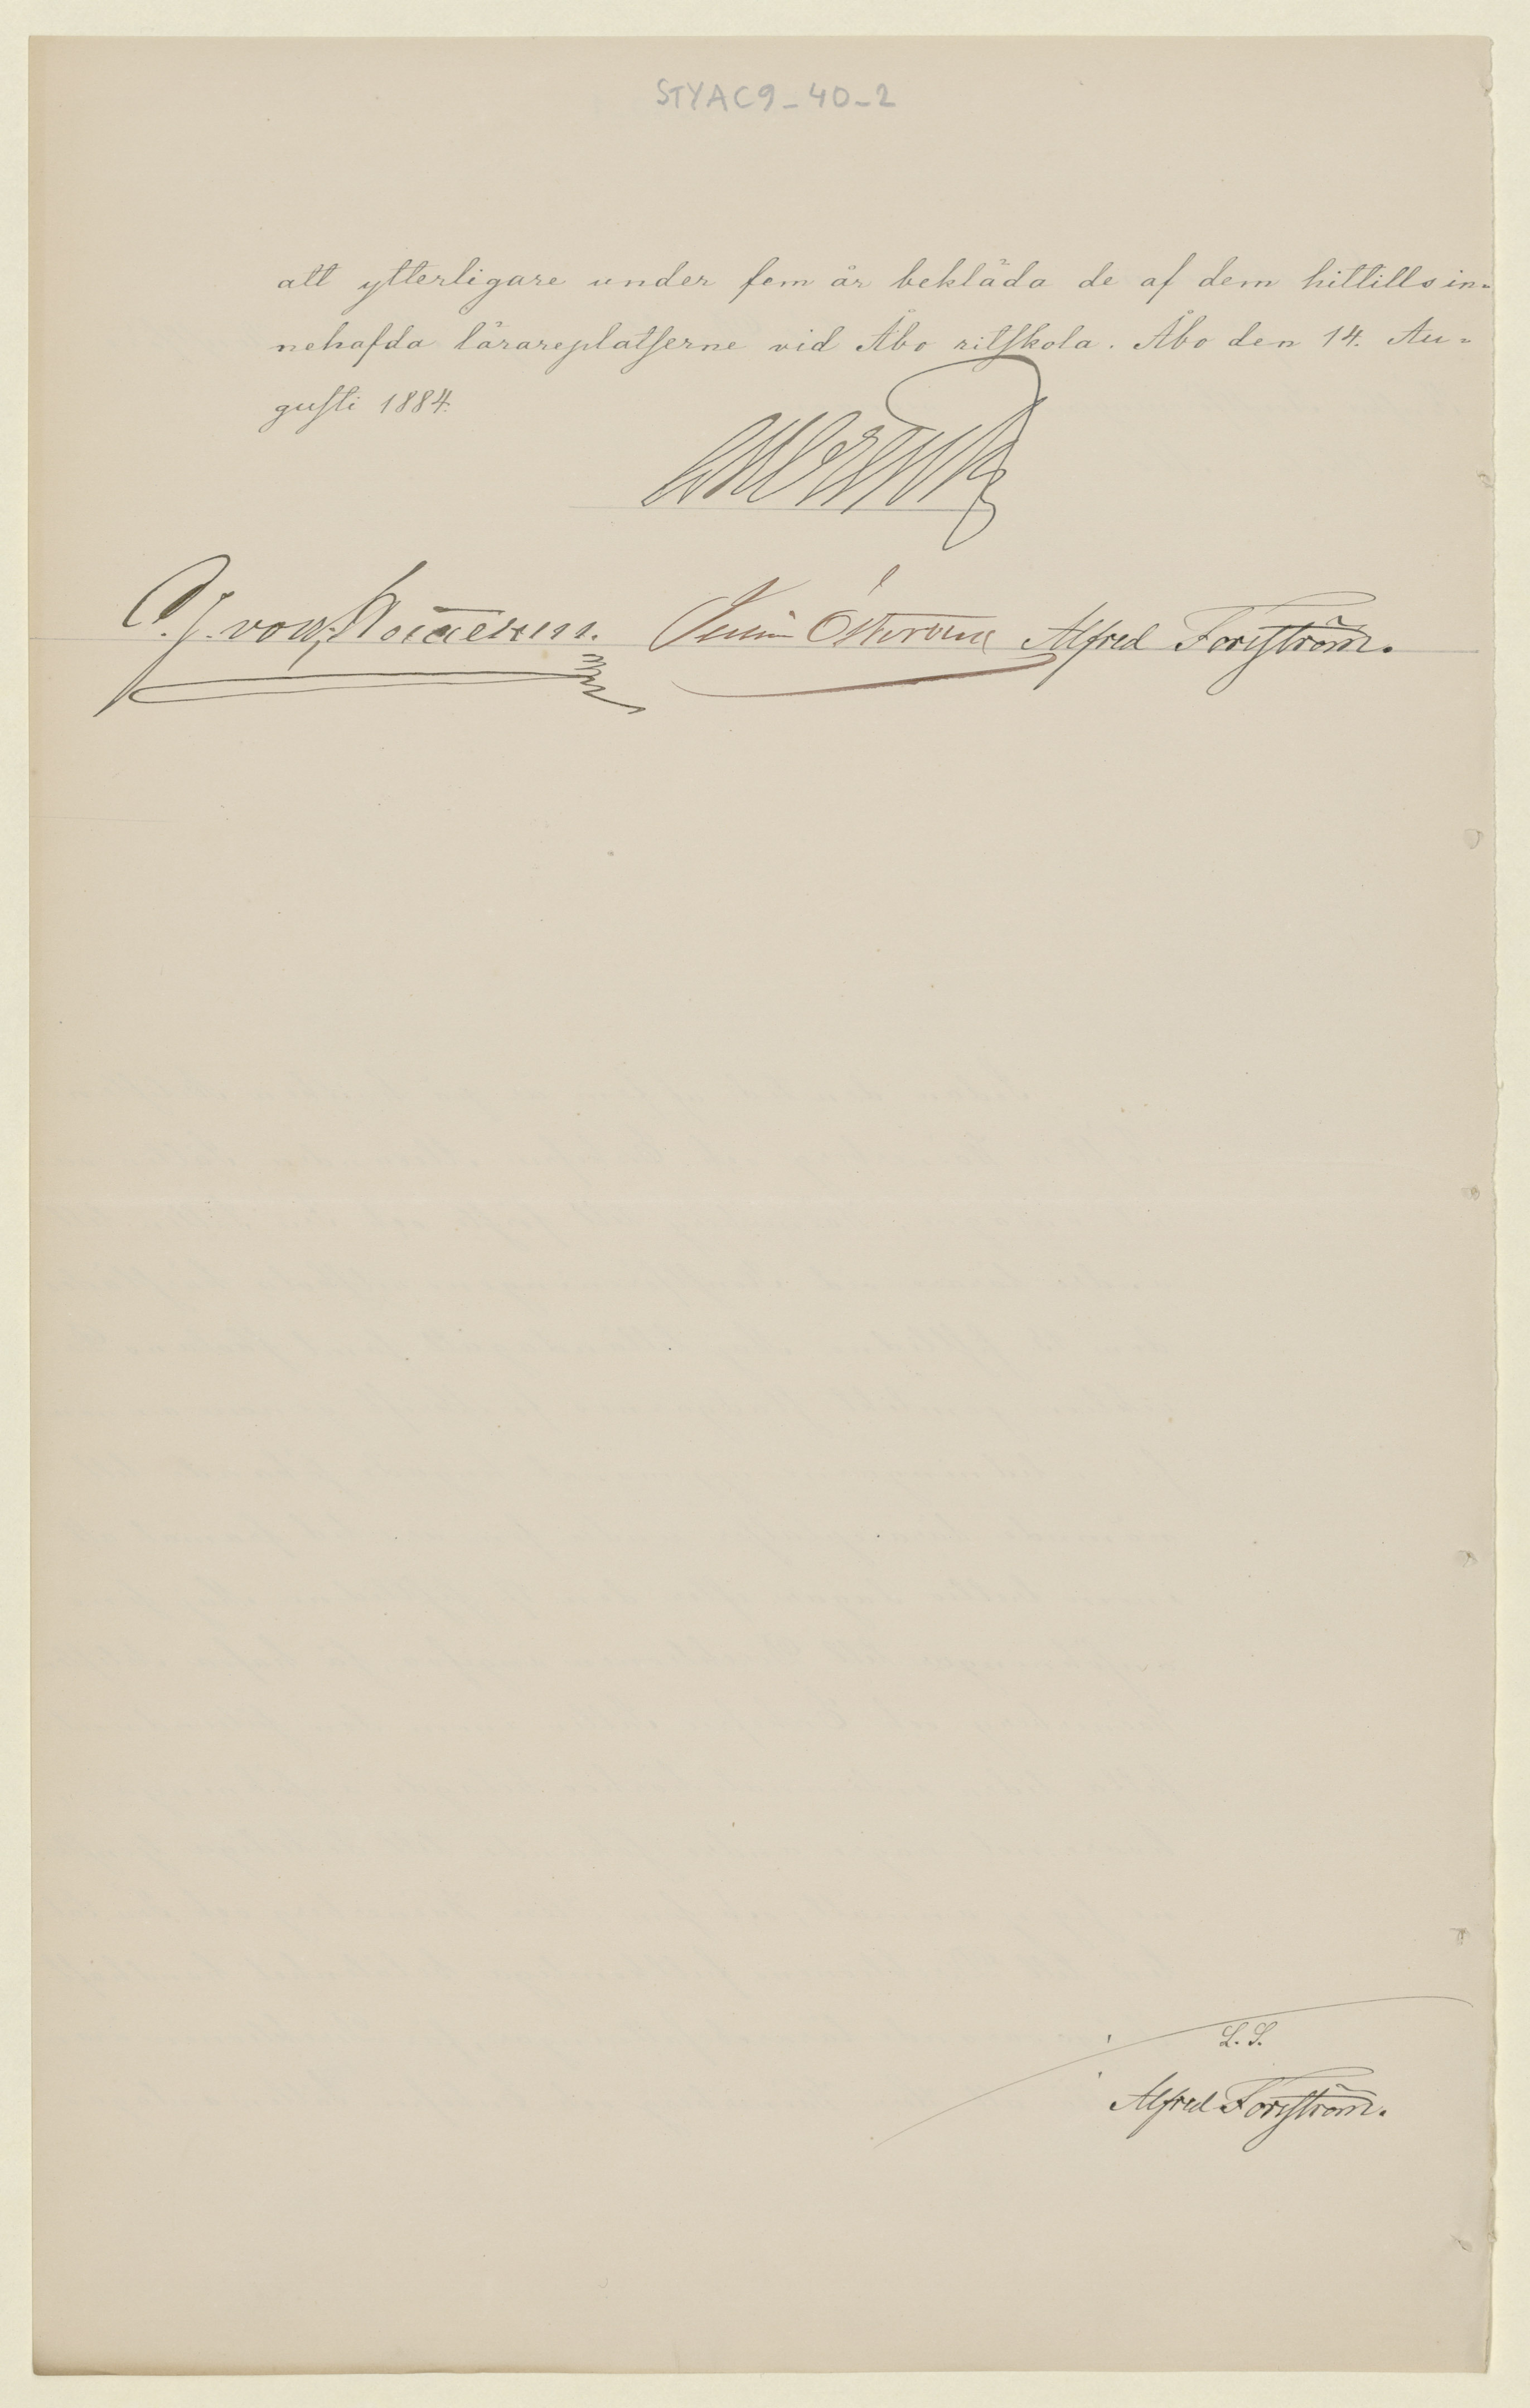 STYAC9_40_2
att ytterligare under fem år bekläda de af dem hittills in-
nehafda lärareplatserne vid Åbo ritskola. Åbo den 14. Au-
gusti 1884.
C. J. von Alfred Forsström.
L. S.
Alfred Forsström.